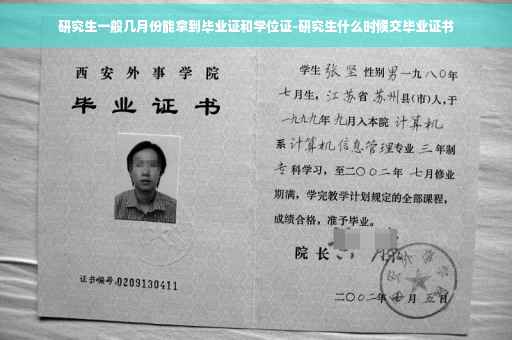 研究生一般几月份能拿到毕业证和学位证-研究生什么时候交毕业证书
西安外事学院
毕业证书
证书编号:0209130411
学生 张坚 性别 男 一九八〇年
七月生，江苏省苏州县(市)人,于
一九九九年九月入本院 计算机
系 计算机信息管理 专业 三 年制
专科学习，至二〇〇二年 七月修业
期满，学完教学计划规定的全部课程，
成绩合格，准予毕业。
院长
二〇〇二年 月五日